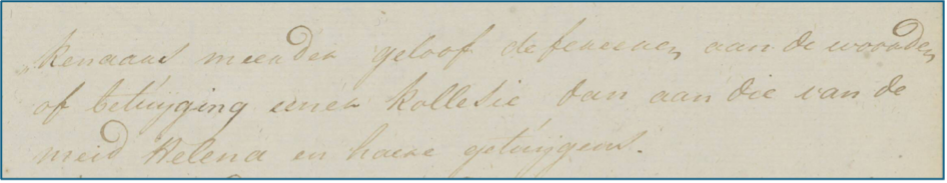 kenaars meerder geloof defereren aan de woorden
of betuyging eener kollesie dan aan die van de
meid Helena en haere getuygens.